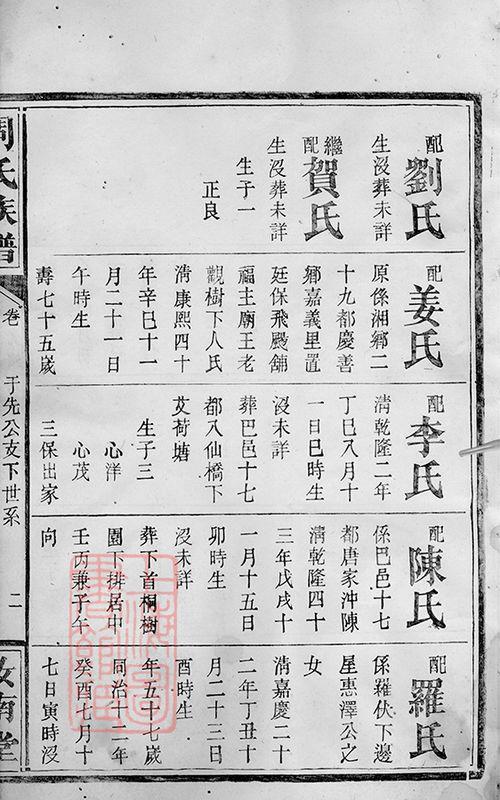 配
劉氏
生沒葬未詳
繼配
賀氏
生沒葬未詳
生子一
正良
配
姜氏
原係湘鄉二
十九都慶善
鄉嘉義里置
廷保飛殿舖
福主廟王老
觀樹下人氏
清康熙四十
年辛巳十一
月二十一日
午時生
壽七十五歲
配
李氏
清乾隆二年
丁巳八月十
一日巳時生
沒未詳
葬巴邑十七
都入仙橋下
艾荷塘
生子三
心洋
心茂
三保出家
配
陳氏
係巴邑十七
都唐家沖陳
清乾隆四十
三年戊戌十
一月十五日
卯時生
沒未詳
葬下首桐樹
園下排居中
壬丙兼子午
向
配
羅氏
係羅伏下邊
星惠澤公之
女
清嘉慶二十
二年丁丑十
月二十三日
酉時生
年五十七歲
同治十二年
癸酉七月十
七日寅時沒
周氏族譜
卷
于先公支下世系
二
汝南堂